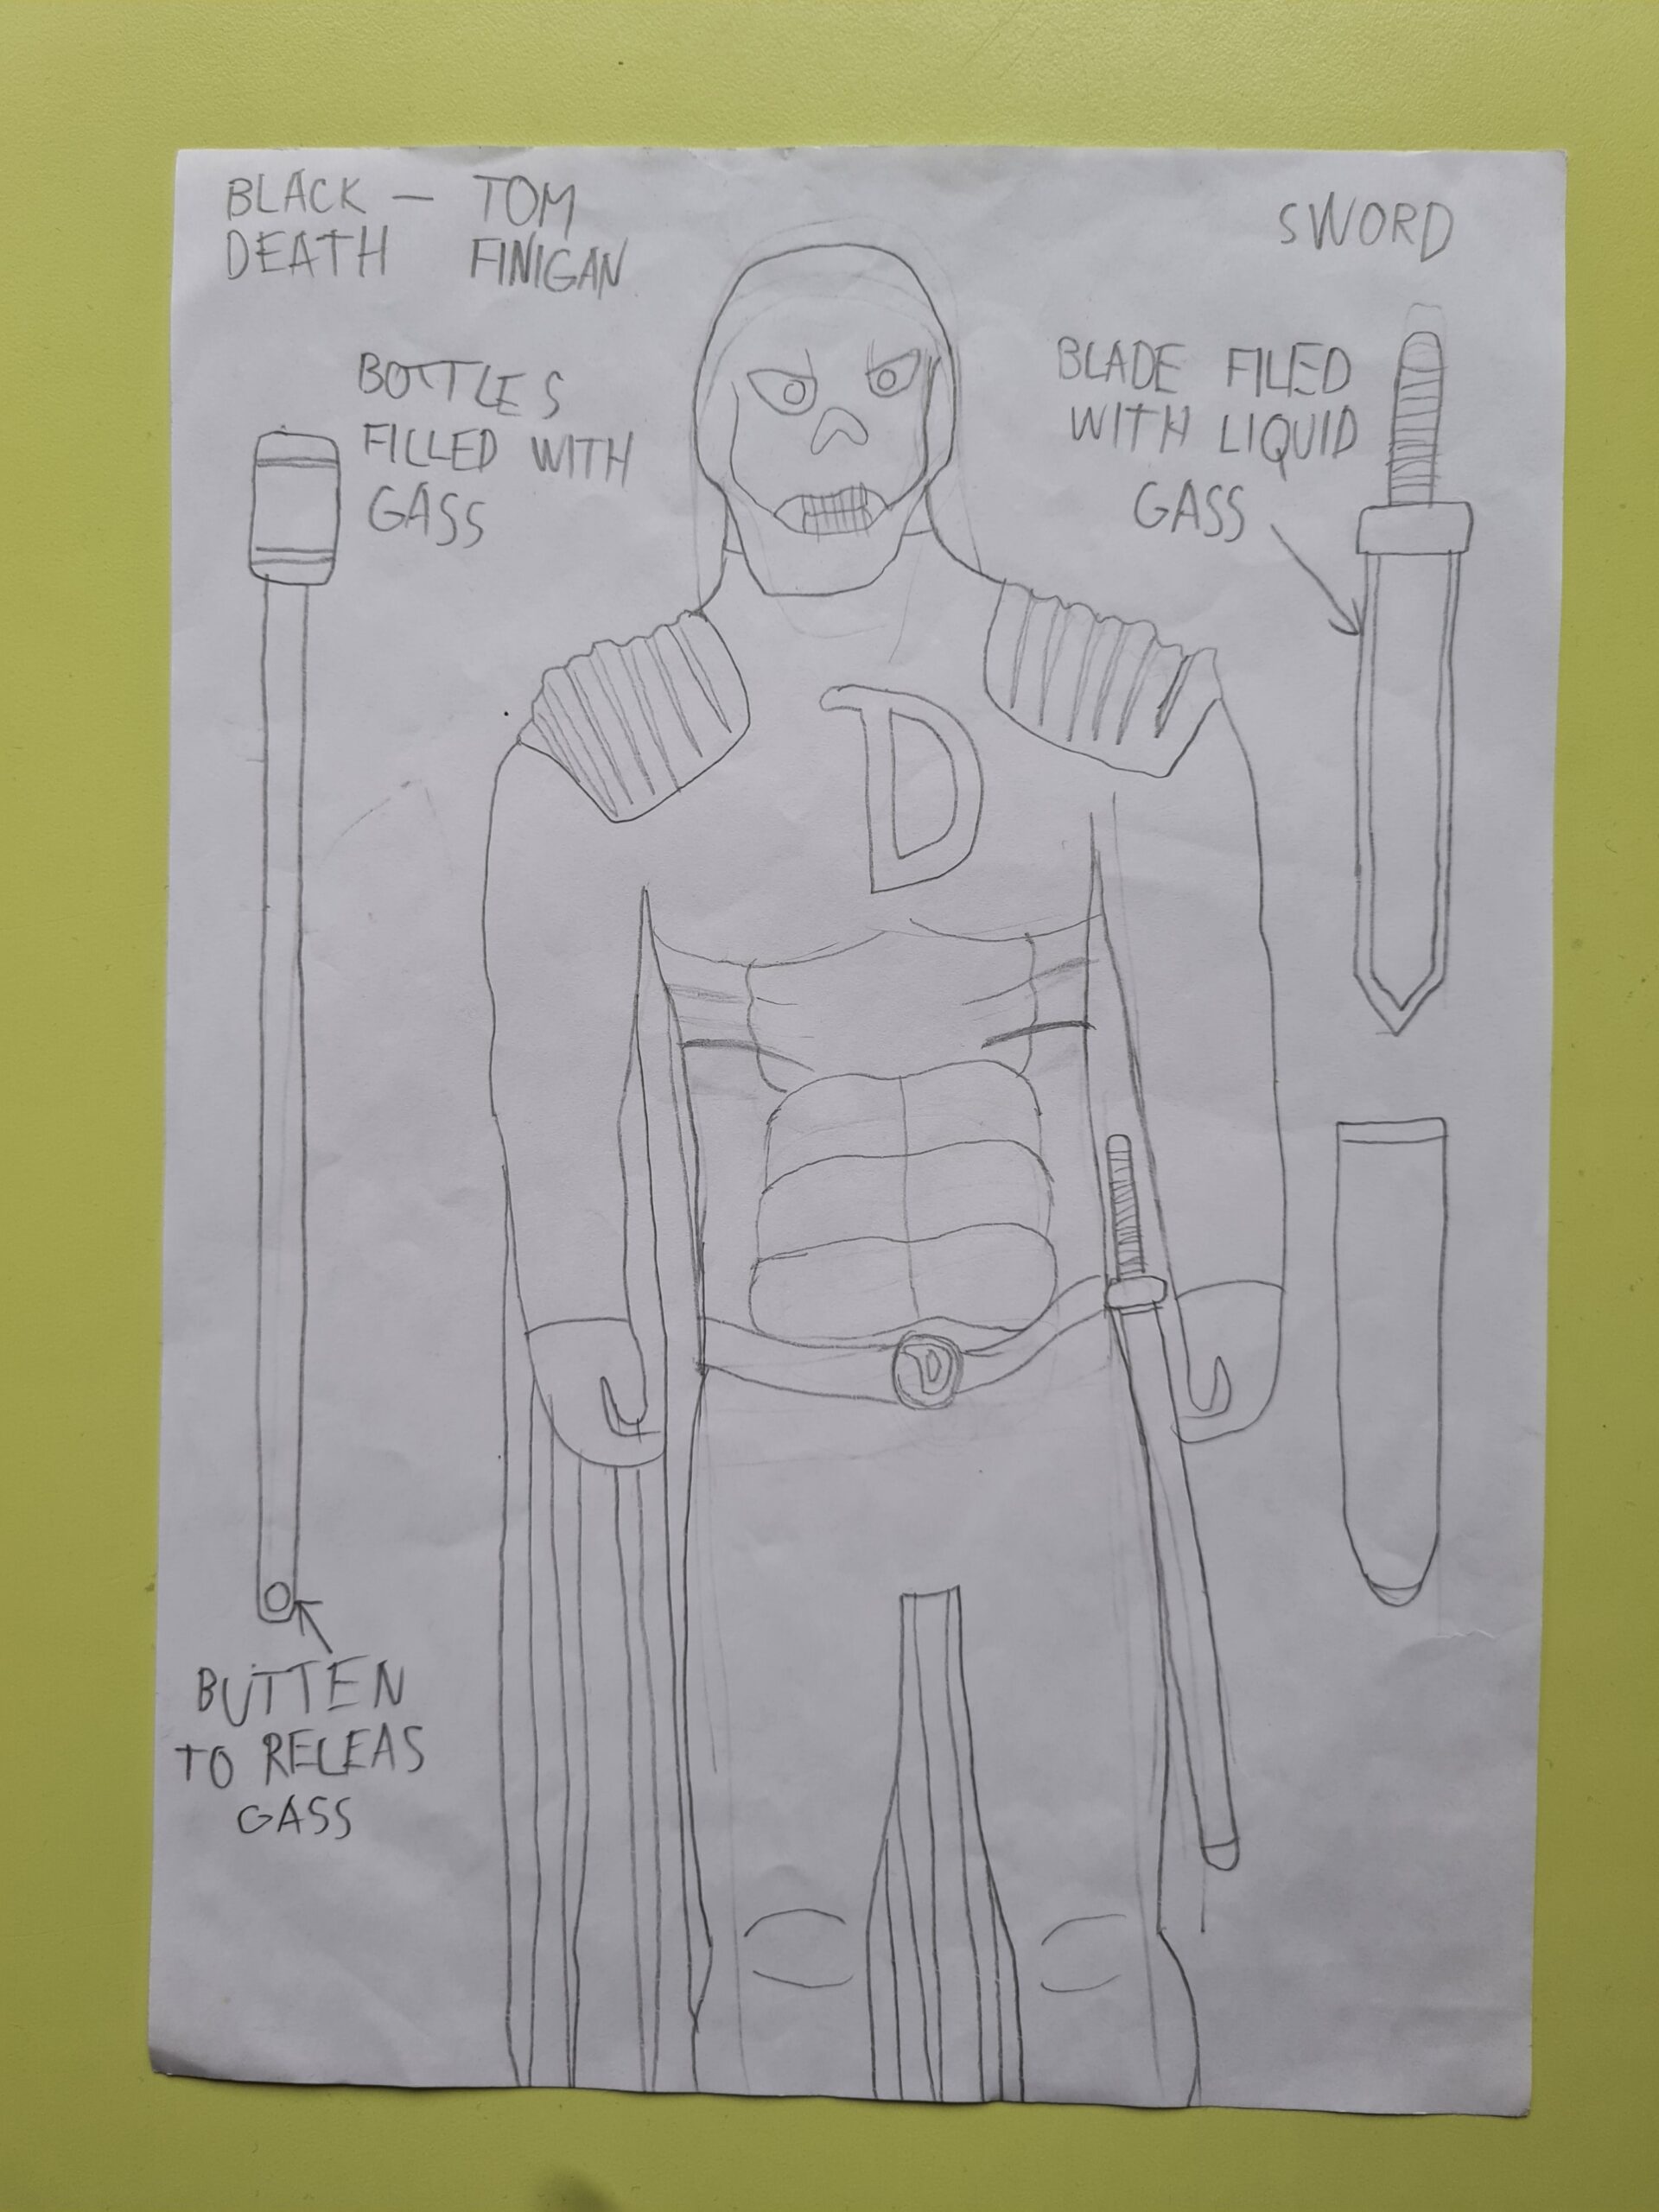 BLACK — TOM
DEATH FINIGAN
SWORD
BOTTLES
FILLED WITH
GASS
BLADE FILED
WITH LIQUID
GASS
D
D
BUTTEN
TO RELEAS
GASS